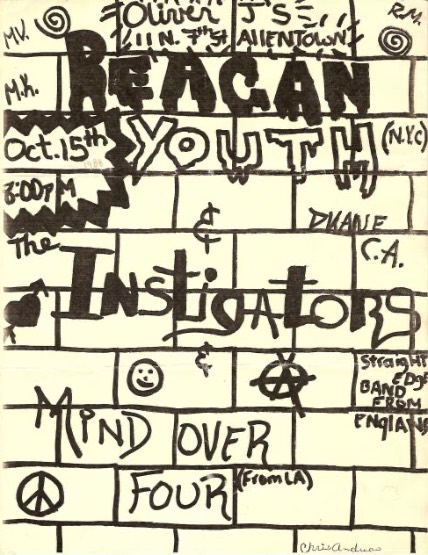 Oliver J'S
MV.
R.M.
11 N. 7th St Allentown
REAGAN
M.K.
YOUTH
(N.Y.C)
Oct. 15th
8:00PM
&
DUANE
The
C.A.
INSTIGATORS
&
A
Straight
EDGE
BAND
FROM
England
MIND OVER
FOUR
(From LA)